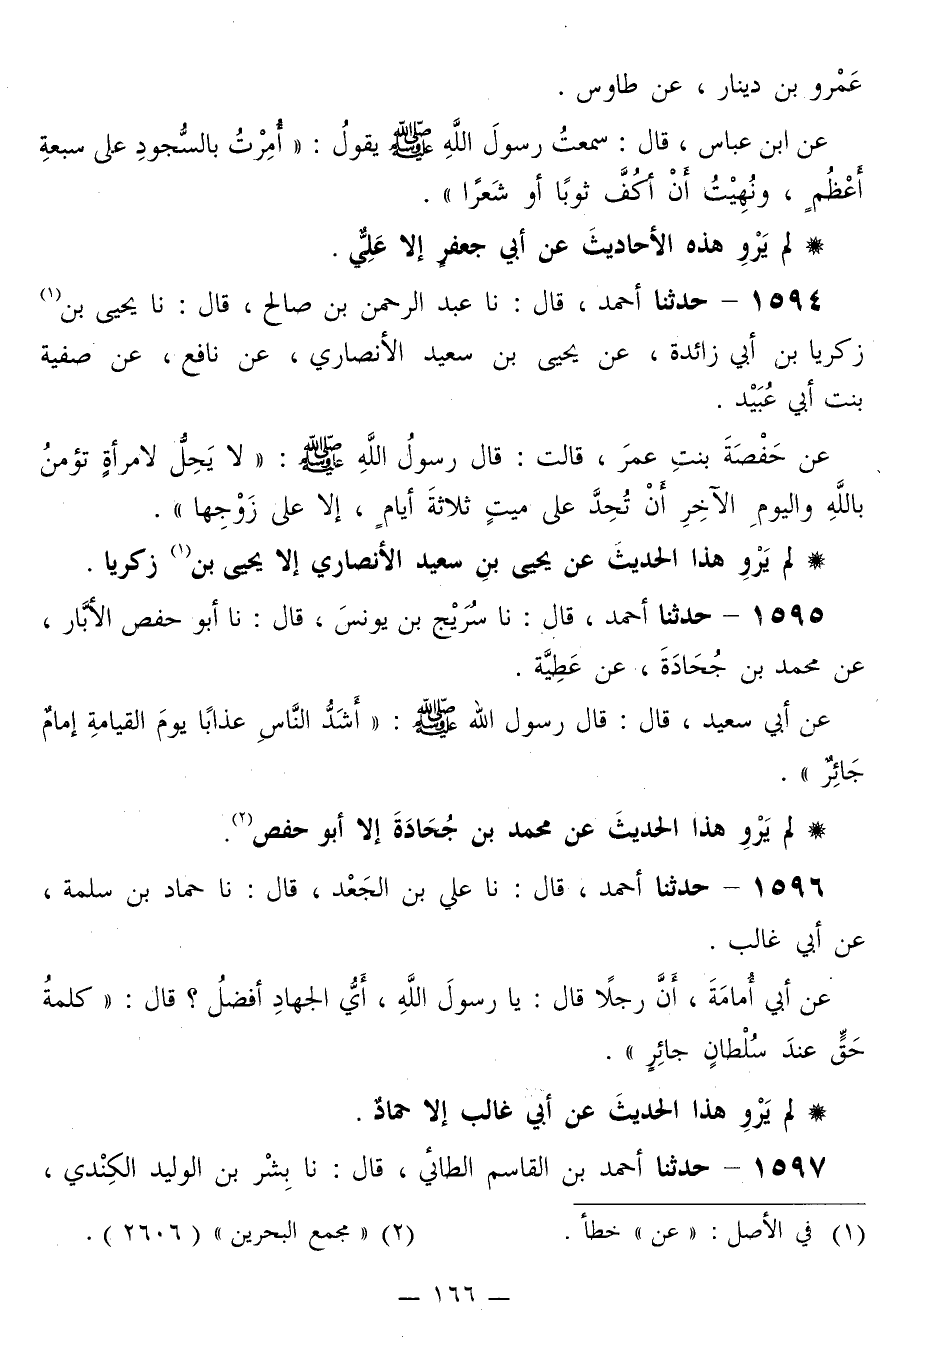 عَمْرو بن دينار ، عن طاوس .
عن ابن عباس ، قال : سمعتُ رسولَ اللَّهِ ﷺ يقولُ : « أُمِرْتُ بالسُّجودِ على سبعةِ
أَعْظُمٍ ، ونُهِيْتُ أَنْ أكُفَّ ثوبًا أو شَعرًا » .
* لم يَرْوِ هذه الأحاديثَ عن أبي جعفرٍ إلا عَلِيٌّ .
١٥٩٤ – حدثنا أحمد ، قال : نا عبد الرحمن بن صالح ، قال : نا يحيى بن(١)
زكريا بن أبي زائدة ، عن يحيى بن سعيد الأنصاري ، عن نافع ، عن صفية
بنت أبي عُبَيْد .
عن حَفْصَةَ بنتِ عمرَ ، قالت : قال رسولُ اللَّهِ ﷺ : « لا يَحِلُّ لامرأةٍ تؤمنُ
باللَّهِ واليومِ الآخِرِ أَنْ تُحِدَّ على ميتٍ ثلاثةَ أيامٍ ، إلا على زَوْجِها » .
* لم يَرْوِ هذا الحديثَ عن يحيى بنِ سعيد الأنصاري إلا يحيى بن(١) زكريا .
١٥٩٥ – حدثنا أحمد ، قال : نا سُرَيْج بن يونسَ ، قال : نا أبو حفص الأبَّار ،
عن محمد بن جُحَادَةَ ، عن عَطِيَّة .
عن أبي سعيد ، قال : قال رسول الله ﷺ : « أَشَدُّ النَّاسِ عذابًا يومَ القيامةِ إمامٌ
جَائِرٌ » .
* لم يَرْوِ هذا الحديثَ عن محمد بن جُحَادَةَ إلا أبو حفص(٢).
١٥٩٦ – حدثنا أحمد ، قال : نا علي بن الجَعْد ، قال : نا حماد بن سلمة ،
عن أبي غالب .
عن أبي أُمامَةَ ، أَنَّ رجلًا قال : يا رسولَ اللَّهِ ، أَيُّ الجهادِ أفضلُ ؟ قال : « كلمةُ
حَقٍّ عندَ سُلْطانٍ جائِرٍ » .
* لم يَرْوِ هذا الحديثَ عن أبي غالب إلا حمادٌ .
١٥٩٧ – حدثنا أحمد بن القاسم الطائي ، قال : نا بِشْر بن الوليد الكِنْدي ،
(١) في الأصل : « عن » خطأ . (٢) « مجمع البحرين » ( ٢٦٠٦ ) .
— ١٦٦ —